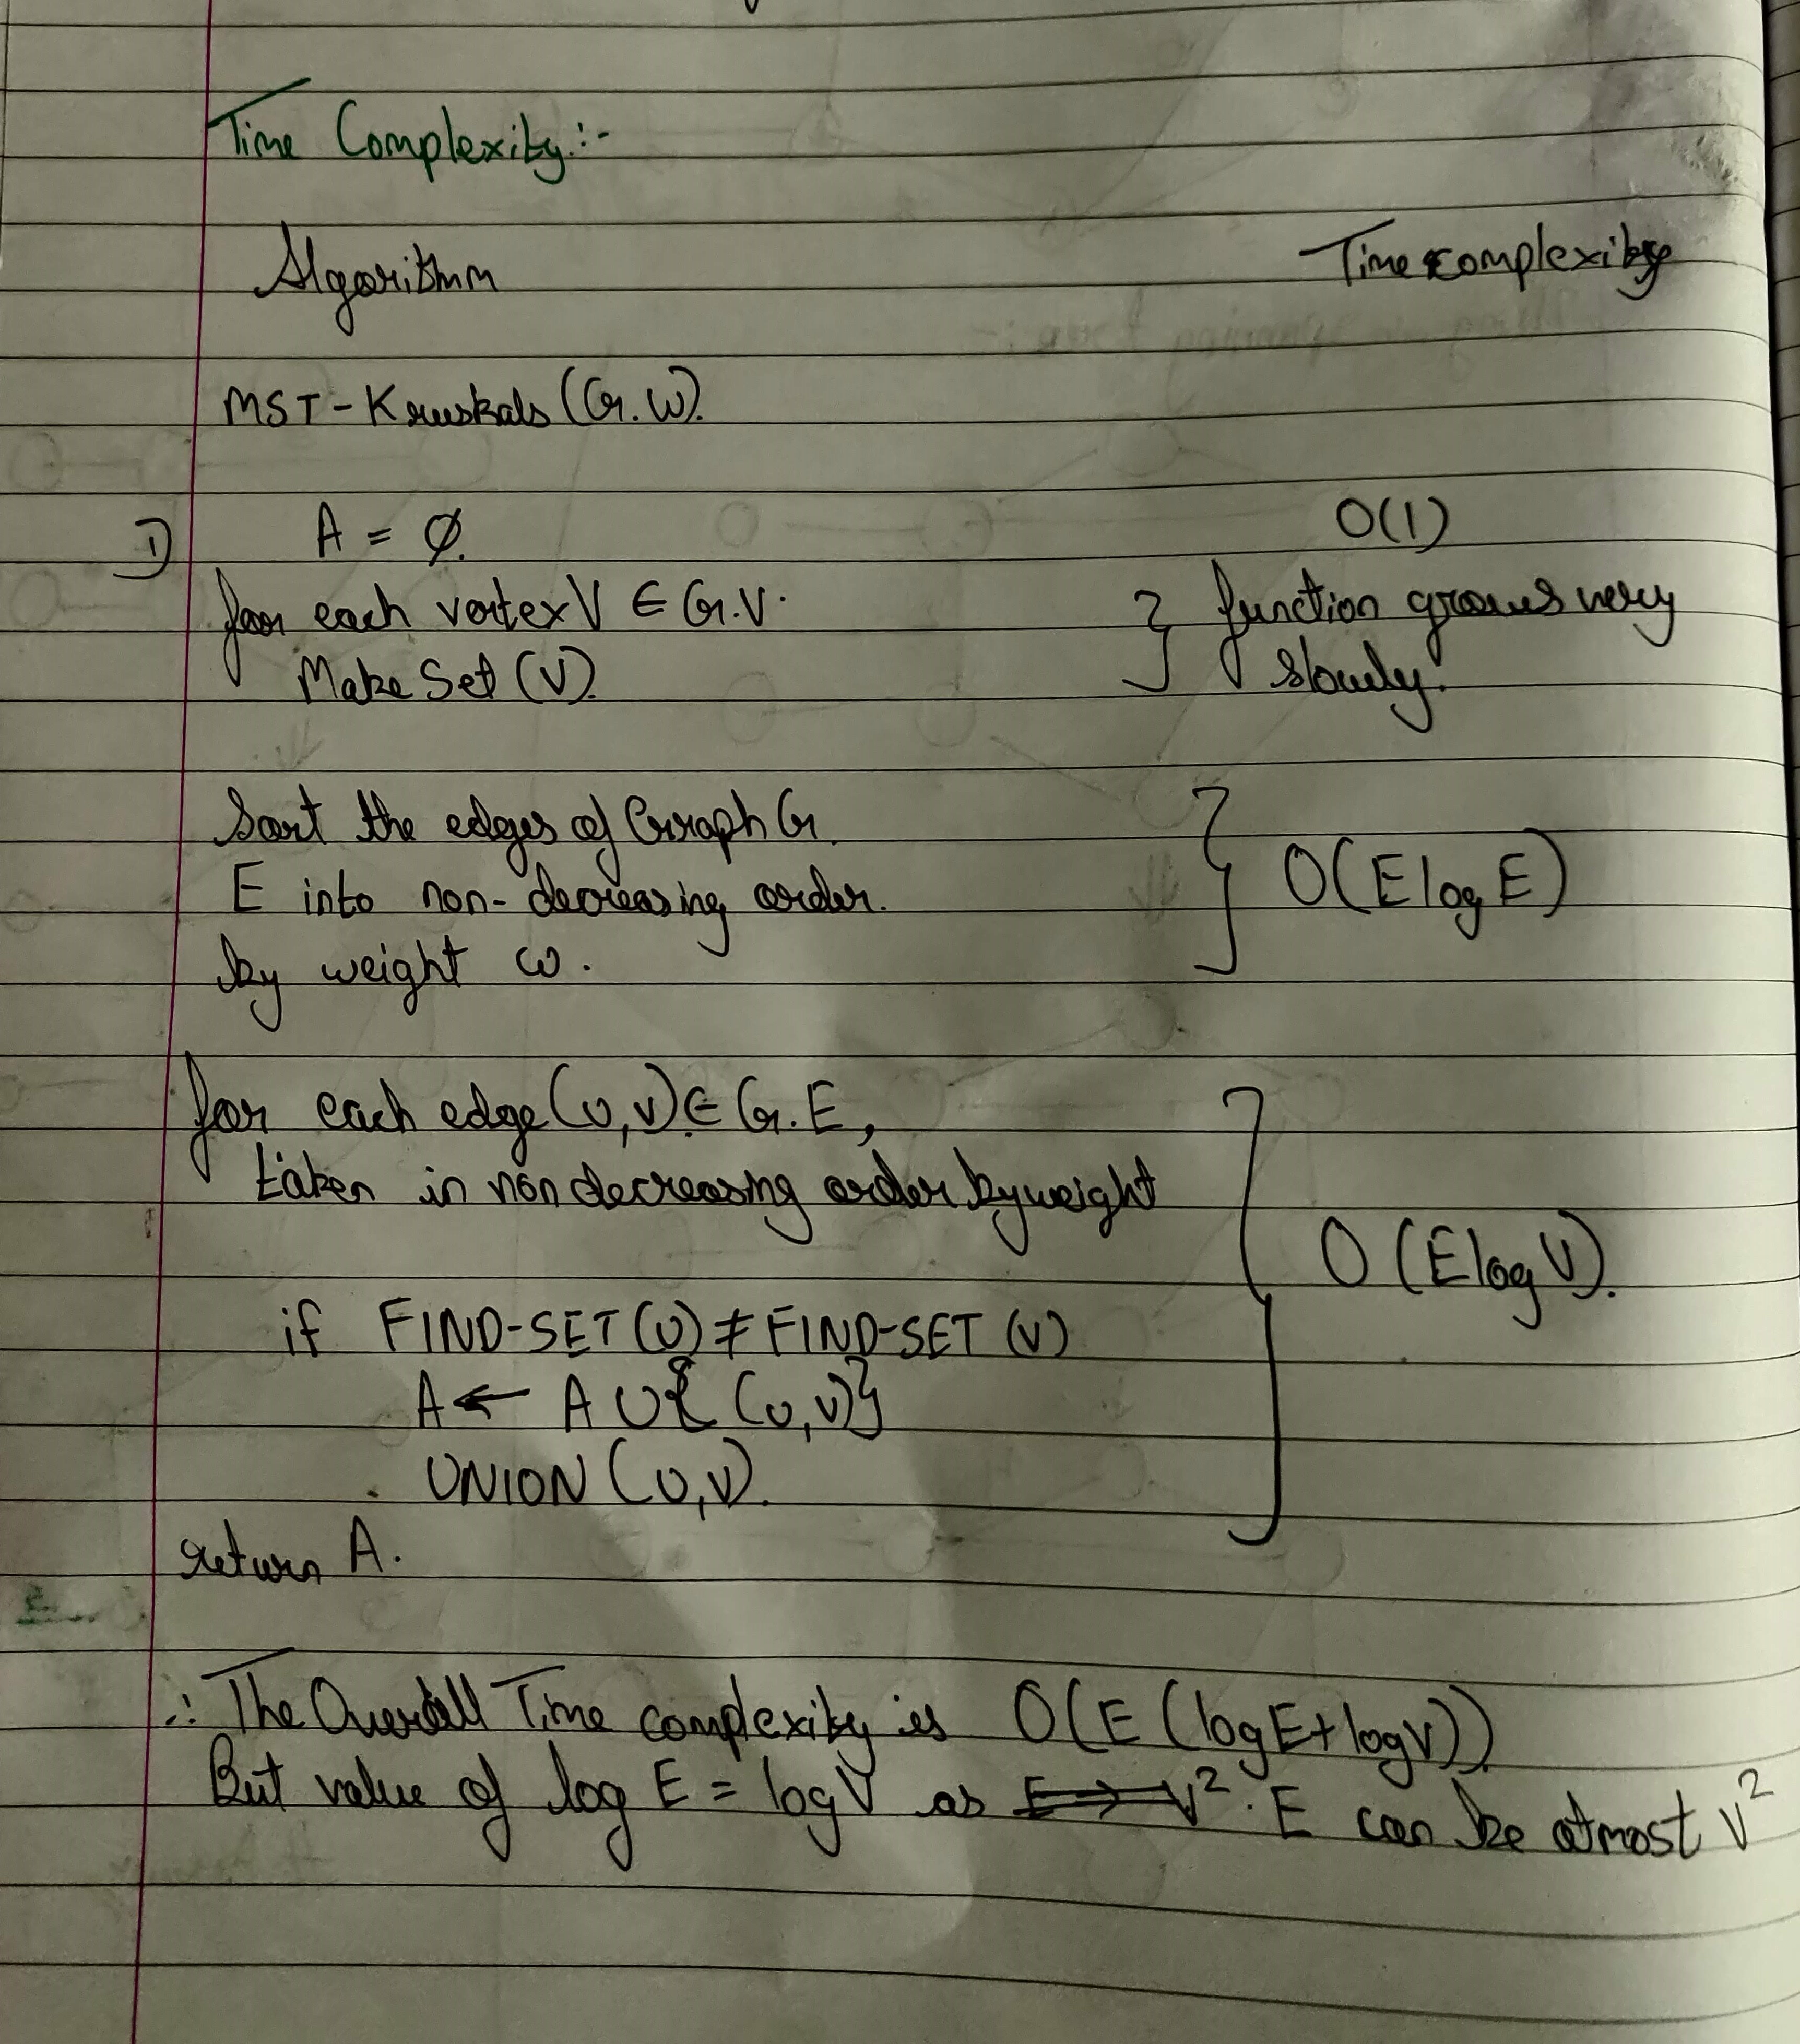 Time Complexity:-
Algorithm Time complexity
MST-Kruskals (G.W).
1) A = Ø. O(1)
for each vertex V ∈ G.V. } function grows very
Make Set (V). slowly.
Sort the edges of Graph G.
E into non-decreasing order. } O(E log E)
by weight ω.
for each edge (u,v) ∈ G.E,
taken in non decreasing order by weight
} O (E log V).
if FIND-SET (U) ≠ FIND-SET (V)
A ← A ∪ { (u,v)}
UNION (U,V).
return A.
∴ The Overall Time complexity is O(E (log E + log V))
But value of log E = log V as E ⟹ V². E can be atmost V²